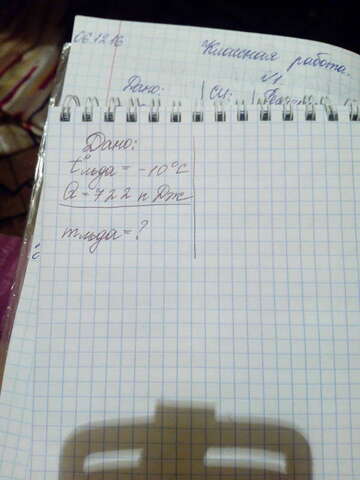 06.12.16
Классная работа.
№1
Дано: | СИ: |
Дано:
t°льда = -10°C
Q = 722 кДж
mльда = ?